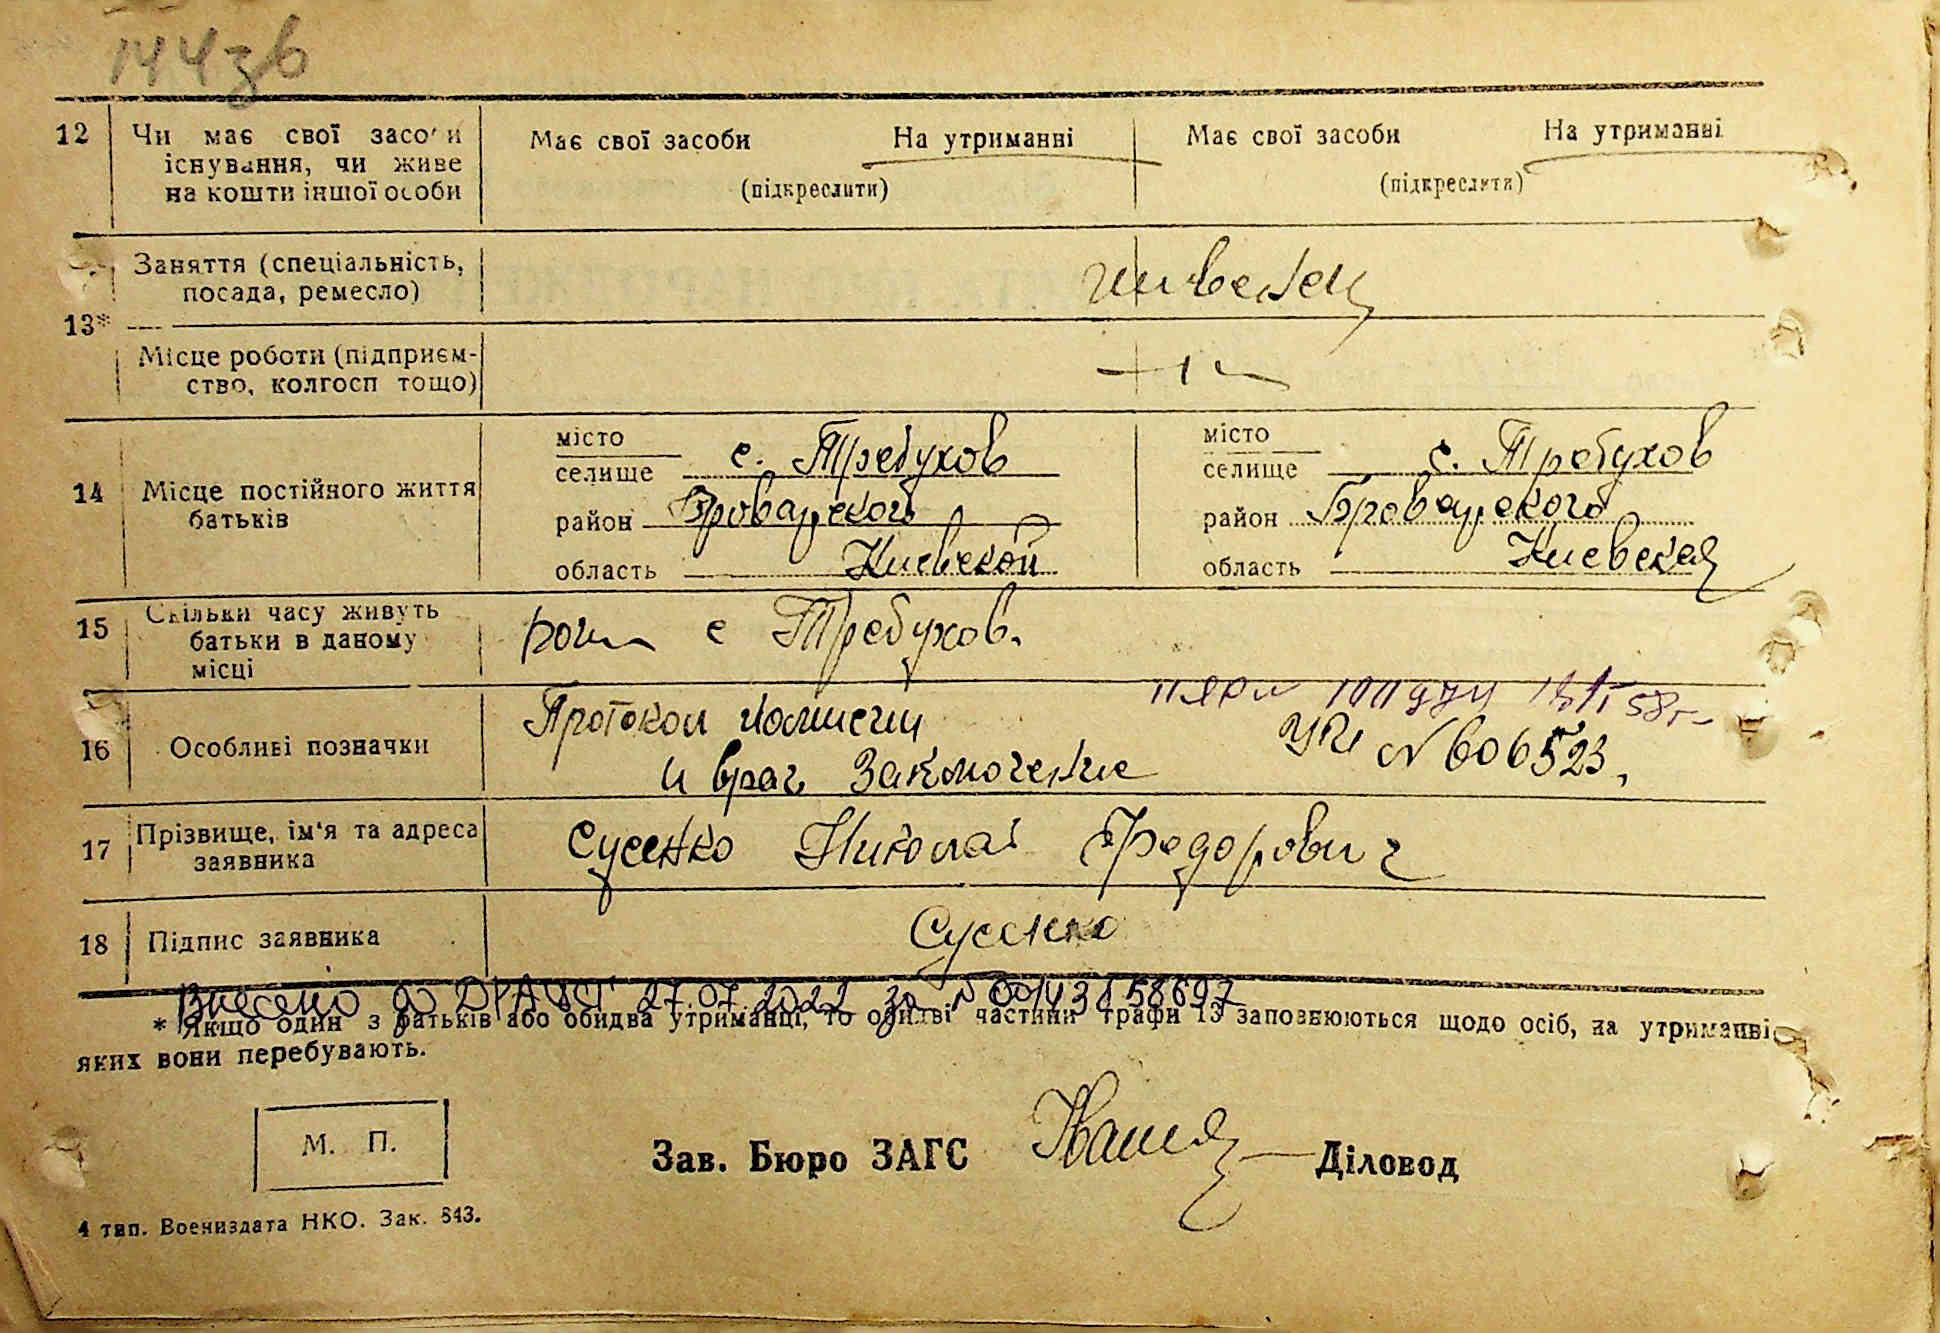 144зв
12 Чи має свої засоби існування, чи живе на кошти іншої особи
Має свої засоби На утриманні
(підкреслити)
Має свої засоби На утриманні
(підкреслити)
13* Заняття (спеціальність, посада, ремесло)
Місце роботи (підприєм-
ство, колгосп тощо)
14 Місце постійного життя батьків
місто
селище с. Требухов
район Броварского
область Киевской
місто
селище с. Требухов
район Броварского
область Киевская
15 Скільки часу живуть батьки в даному місці
с Требухов.
16 Особливі позначки
Протокол комиссии
и врач. Заключение
58г.
N 606523,
17 Прізвище, ім'я та адреса заявника
Сусенко Николай Федорович
18 Підпис заявника
Сусенко
Внесено до ДРАЦСГ 27.07.2022 за №
* Якщо один з батьків або обидва утриманці, то обидві частини графи 13 заповнюються щодо осіб, на утриманні
яких вони перебувають.
М. П.
Зав. Бюро ЗАГС Діловод
4 тип. Воениздата НКО. Зак. 843.